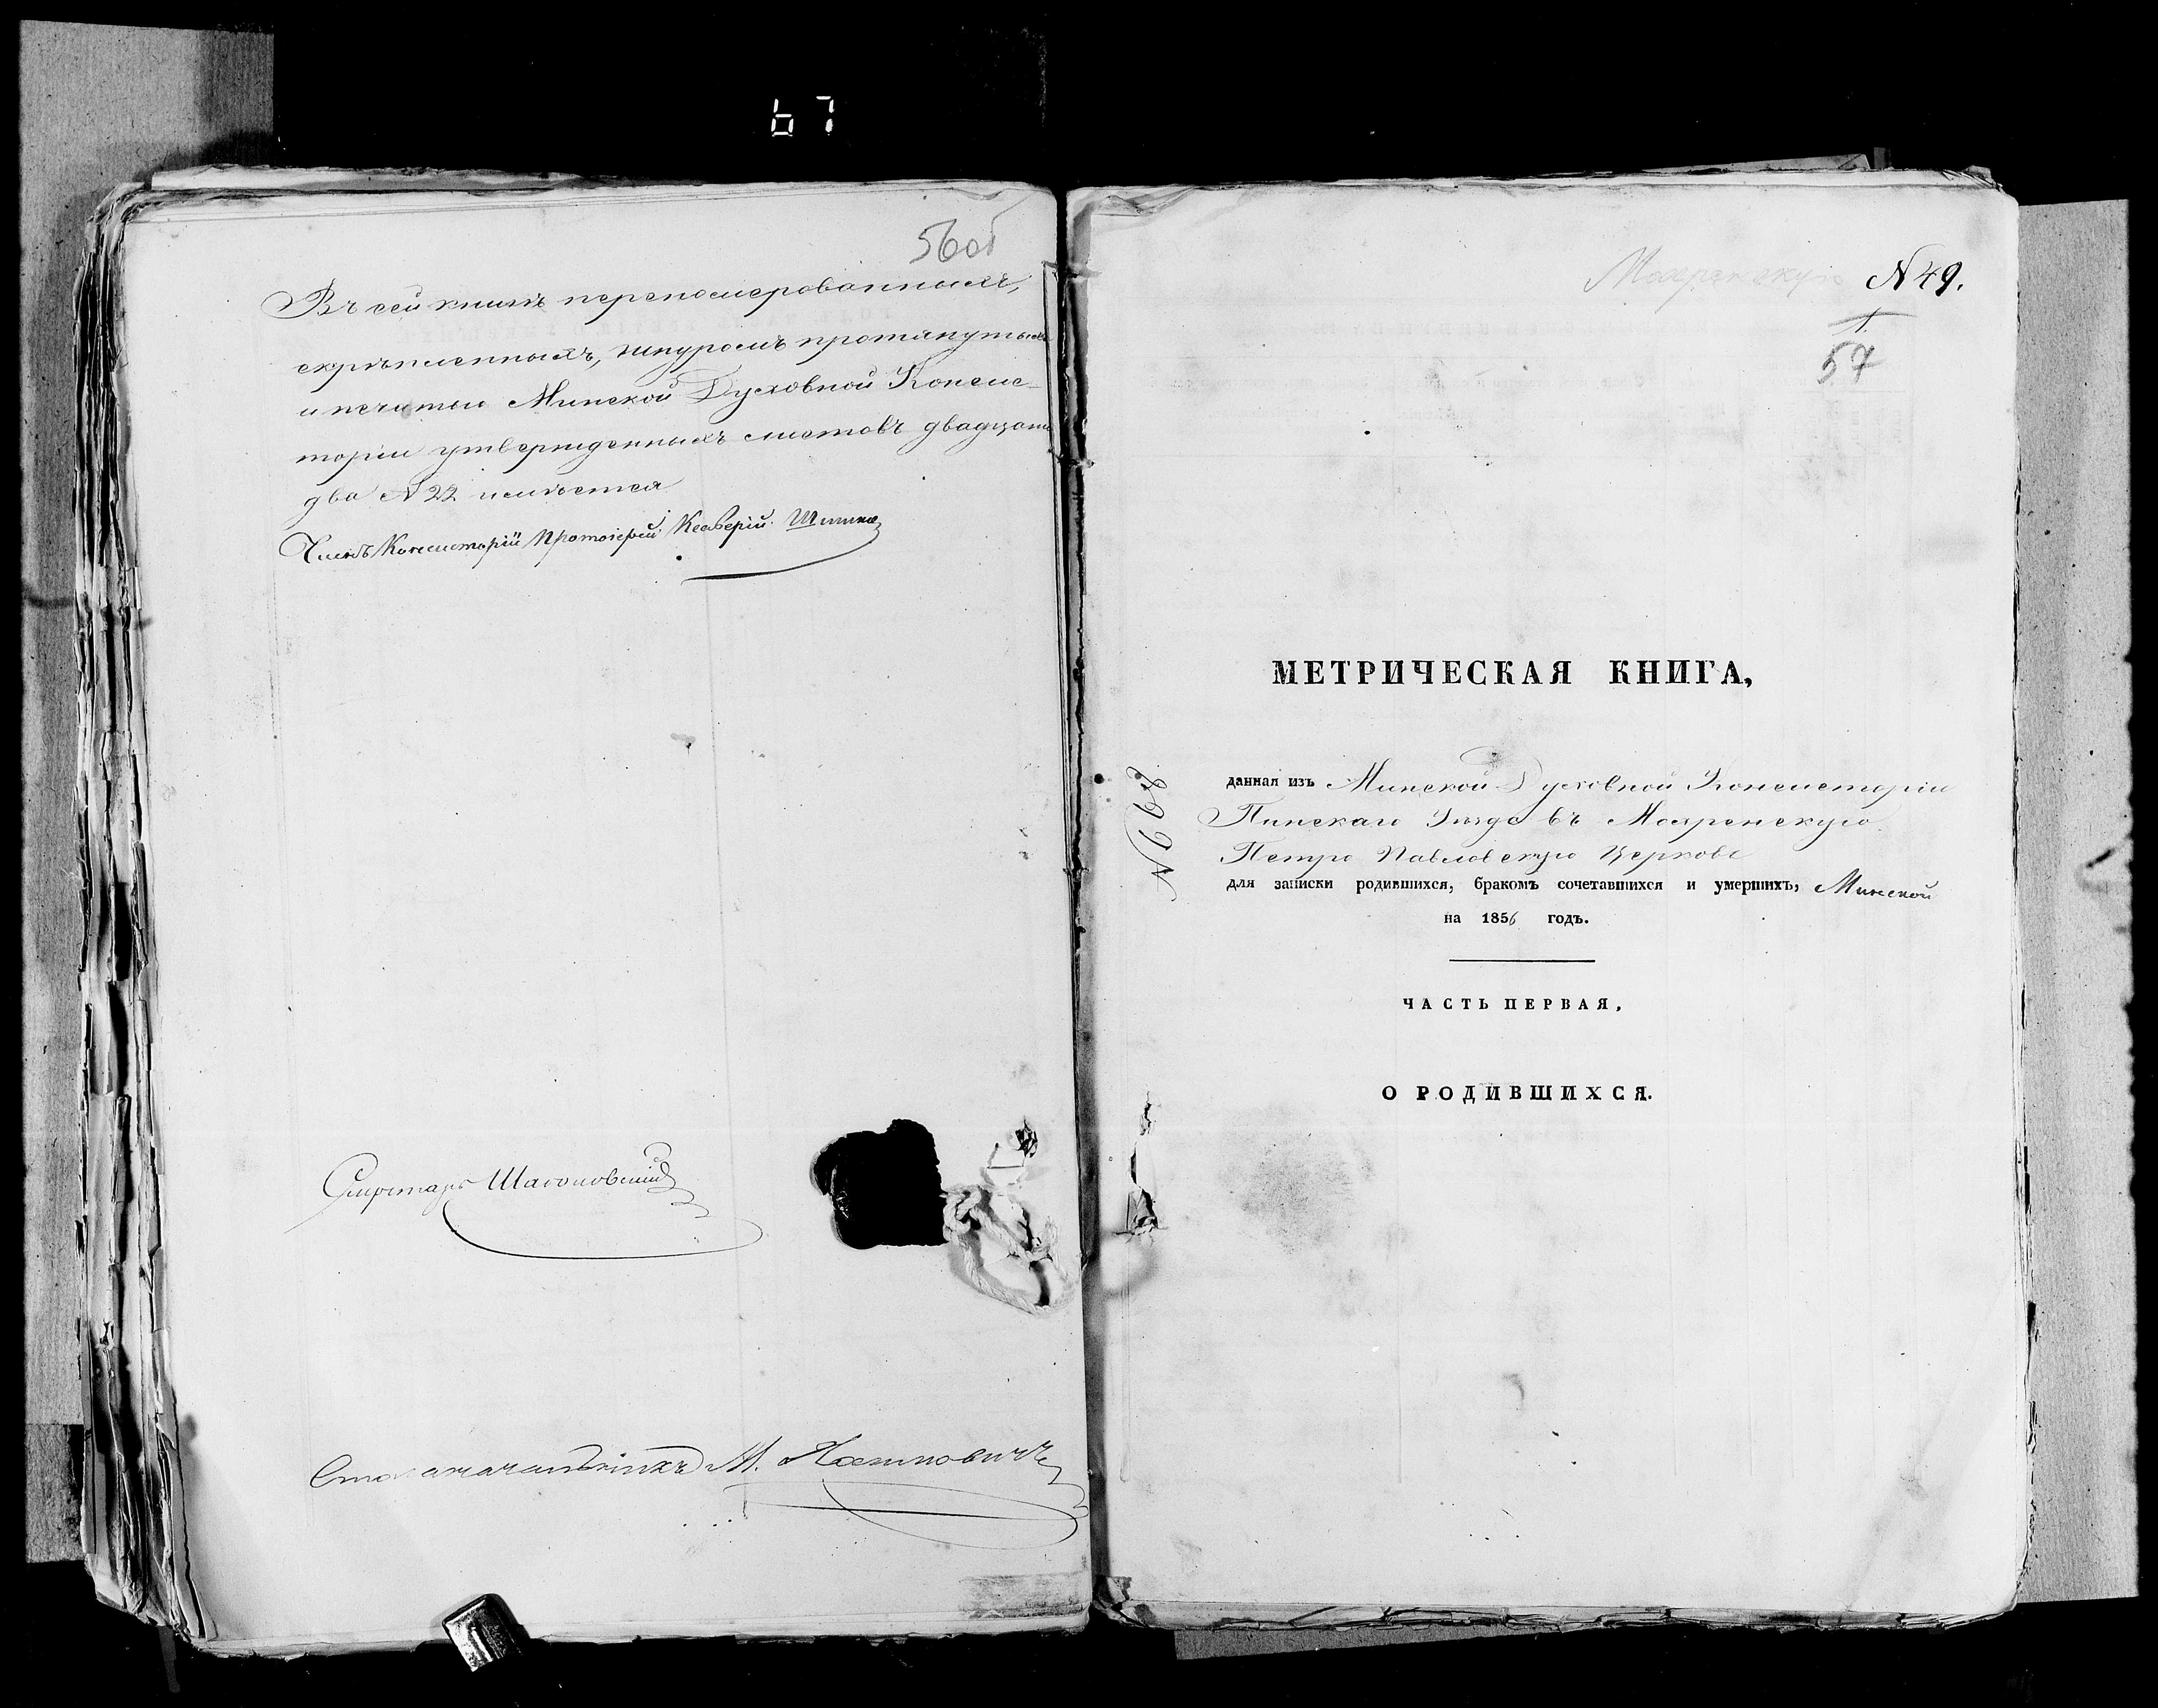 67
56 об
Въ сей книгѣ перенумерованныхъ,
скрѣпленныхъ, шнуромъ протянутыхъ
и печатью Минской Духовной Консис-
торіи утвержденныхъ листовъ двадцать
два № 22 имѣется
Членъ Консисторіи Протоіерей Ксаверій
Секретарь
Столоначальникъ М.
№ 49.
1
57
МЕТРИЧЕСКАЯ КНИГА,
данная изъ Минской Духовной Консисторіи
Пинскаго Уѣзда въ Мохренскую
Петро Павловскую Церковь
для записки родившихся, бракомъ сочетавшихся и умершихъ, Минской
на 1856 годъ.
№ 668
ЧАСТЬ ПЕРВАЯ,
О РОДИВШИХСЯ.